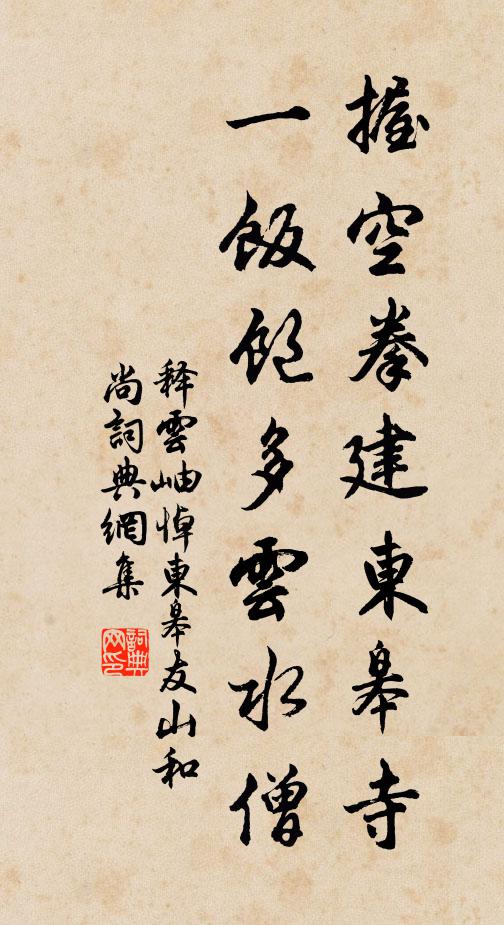 握空拳建東皋寺
一飯飽多雲水僧
釋雲岫悼東皋友山和
尚詞典網集
詞典
网印